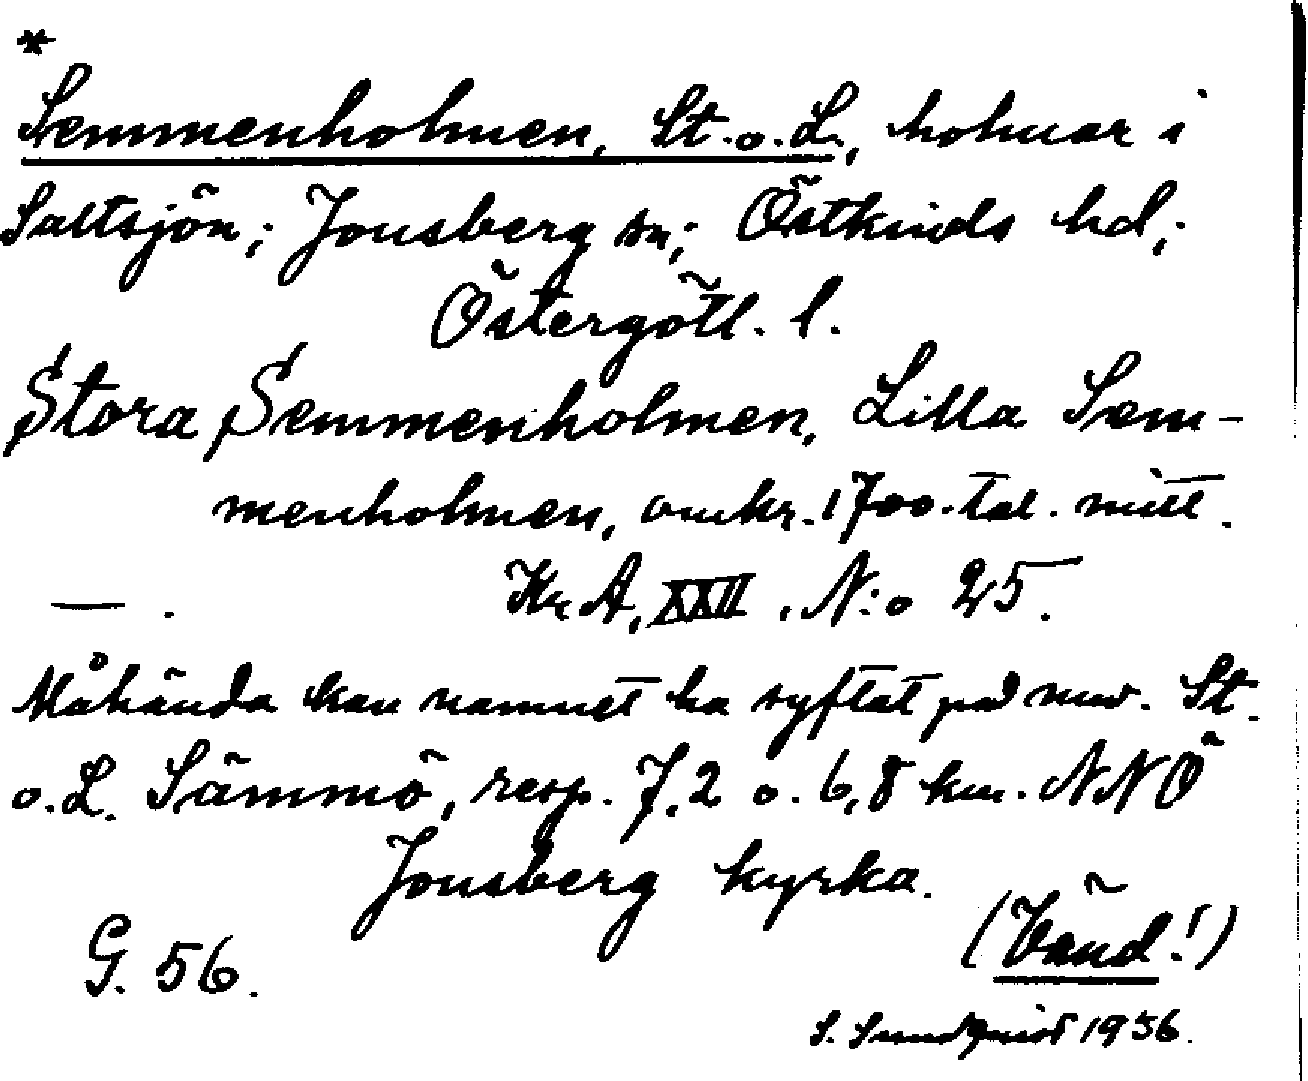 *
Semmenholmen, St. o. L., holmar i
Saltsjön; Jonsberg sn; Östkinds hd;
Östergötl. l.
Stora Semmenholmen, Lilla Sem-
menholmen, omkr. 1700-tal. mitt.
— . Kr. A, XXII, N:o 25.
Måhända kan namnet ha syftat på nuv. St.
o. L. Sämmö, resp. 7,2 o. 6,8 km. NNÖ
Jonsberg kyrka.
(Vänd!)
G. 56.
S. Sundquist 1936.